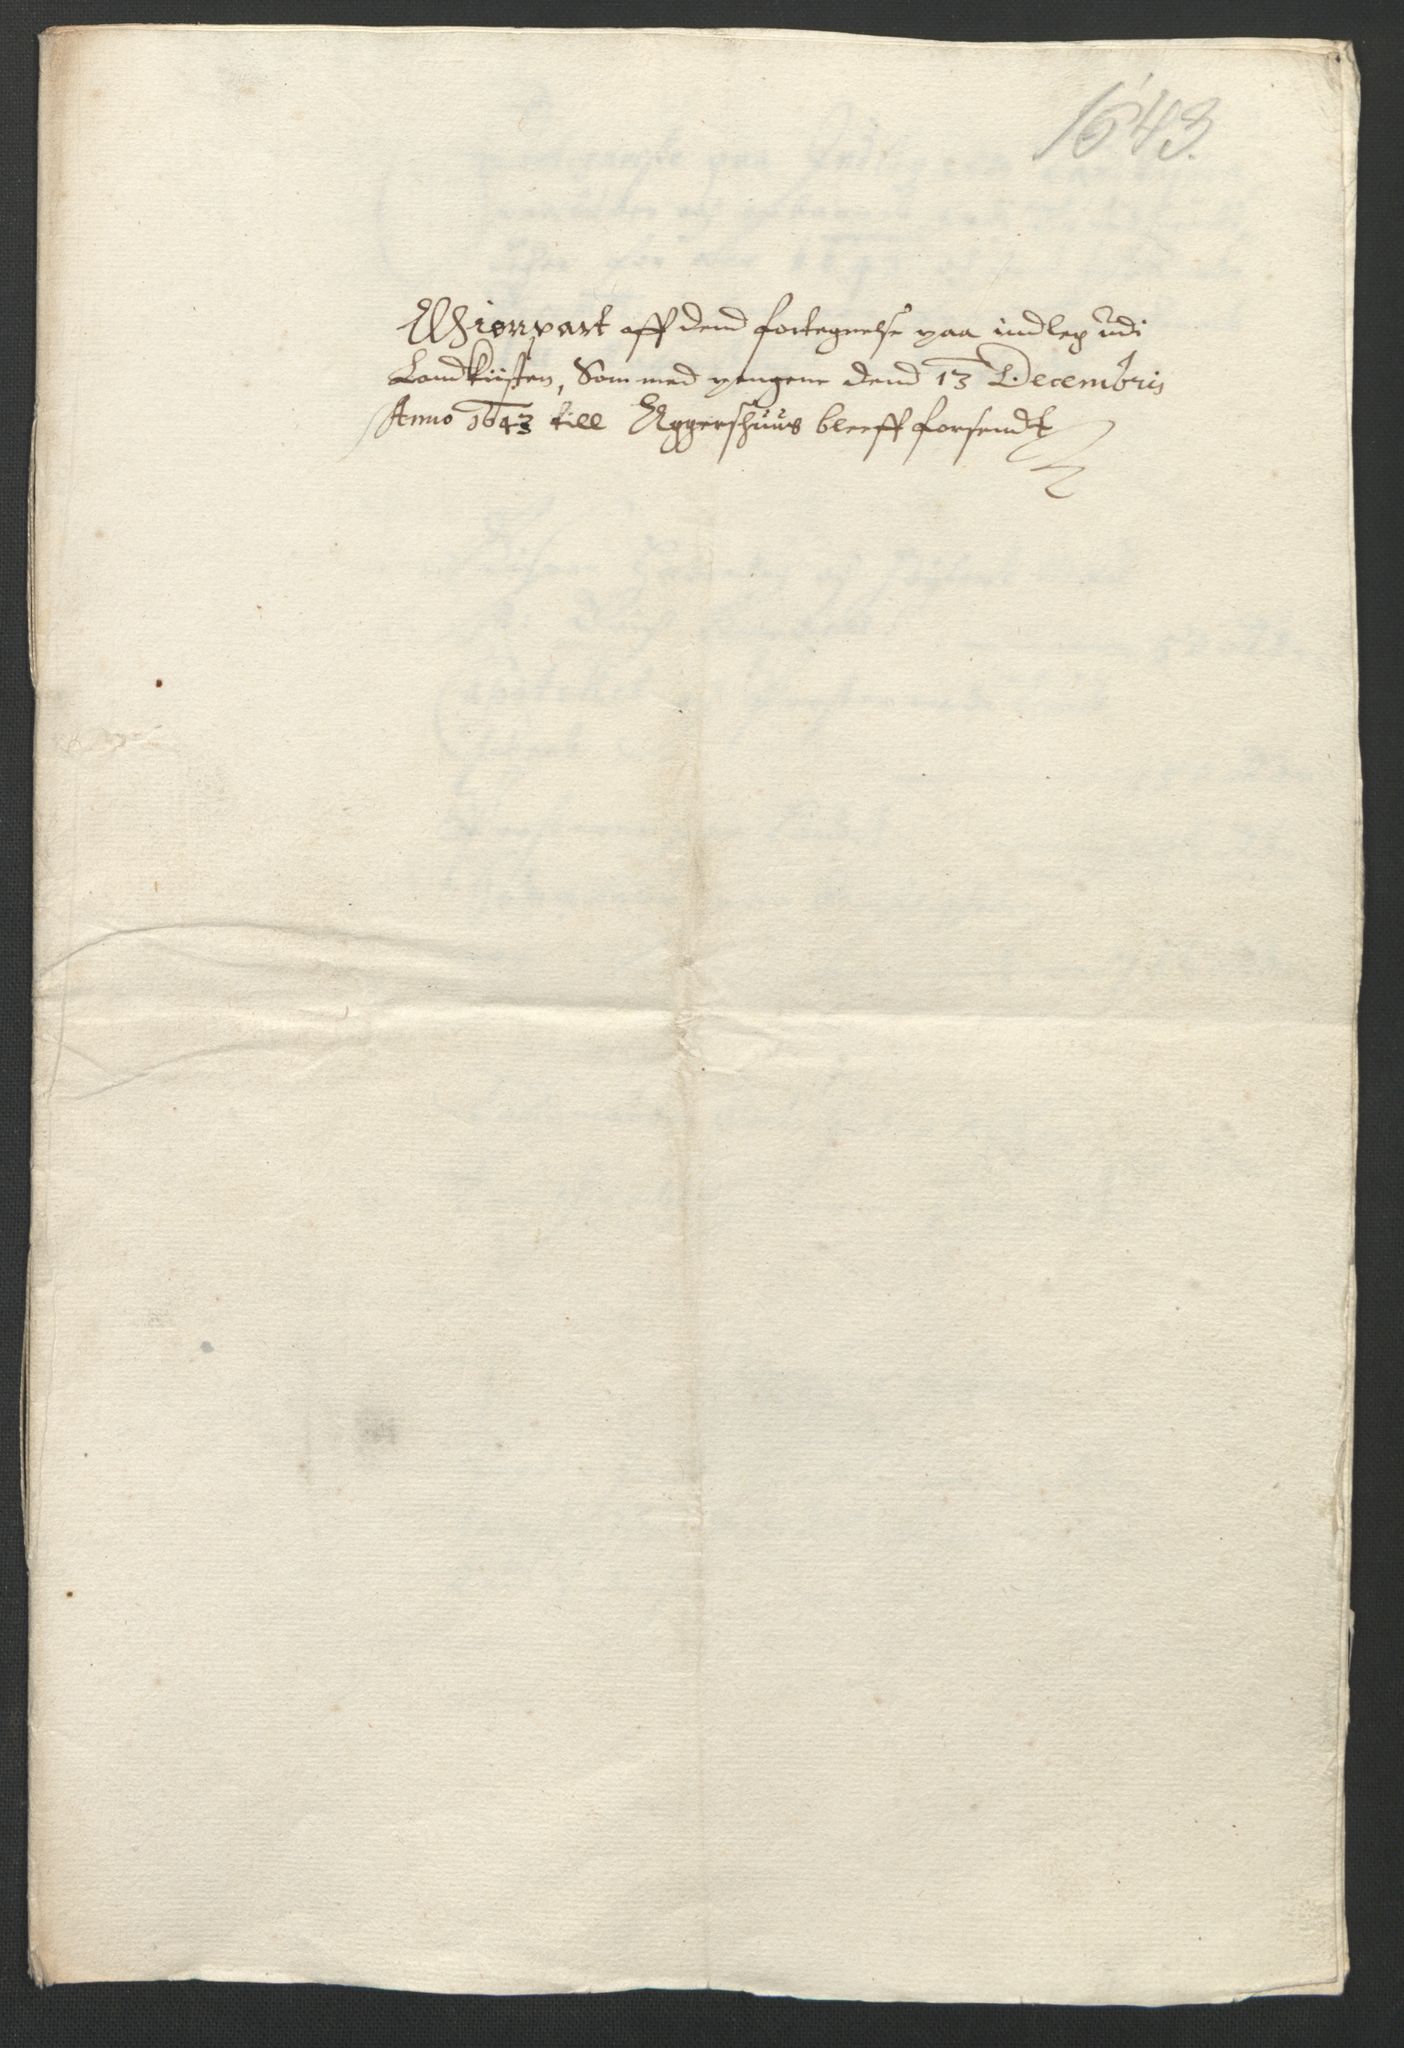 1643.
Gienpart aff dend fortegnelse paa indleg udi
Landkiisten, Som med pengene dend 13 Decembris
Anno 1643 till Aggershuus bleeff forsendt